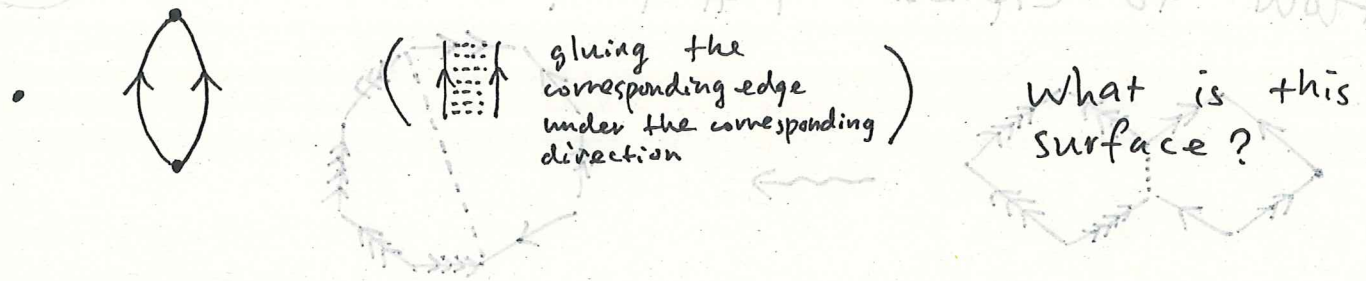 gluing the
corresponding edge
under the corresponding
direction
What is this
surface?